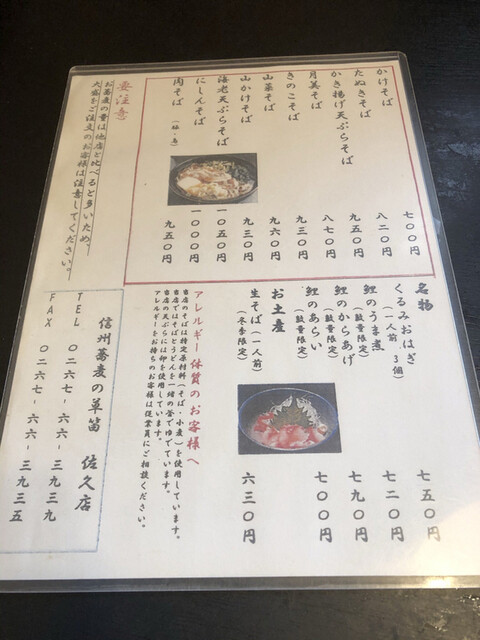 かけそば 七〇〇円
たぬきそば 八二〇円
かき揚げ天ぷらそば 九五〇円
月美そば 八七〇円
きのこそば 九三〇円
山菜そば 九六〇円
山かけそば 九三〇円
海老天ぷらそば 一〇五〇円
にしんそば 一〇〇〇円
肉そば (鴨・鳥) 九五〇円
要注意
お蕎麦の量は他店と比べると多いため、
大盛をご注文のお客様は注意してください。
名物
くるみおはぎ 七五〇円
(一人前 3個)
鯉のうま煮 七二〇円
(数量限定)
鯉のからあげ 七九〇円
(数量限定)
鯉のあらい 七〇〇円
(数量限定)
お土産
生そば(一人前) 六三〇円
(冬季限定)
アレルギー体質のお客様へ
当店のそばは特定原材料(そば・小麦)を使用しています。
当店ではそばとうどんを一緒の釜でゆでています。
当店の天ぷらには卵を使用しています。
アレルギーをお持ちのお客様は従業員にご相談ください。
信州蕎麦の草笛 佐久店
TEL 〇二六七-六六-三九三九
FAX 〇二六七-六六-三九三五